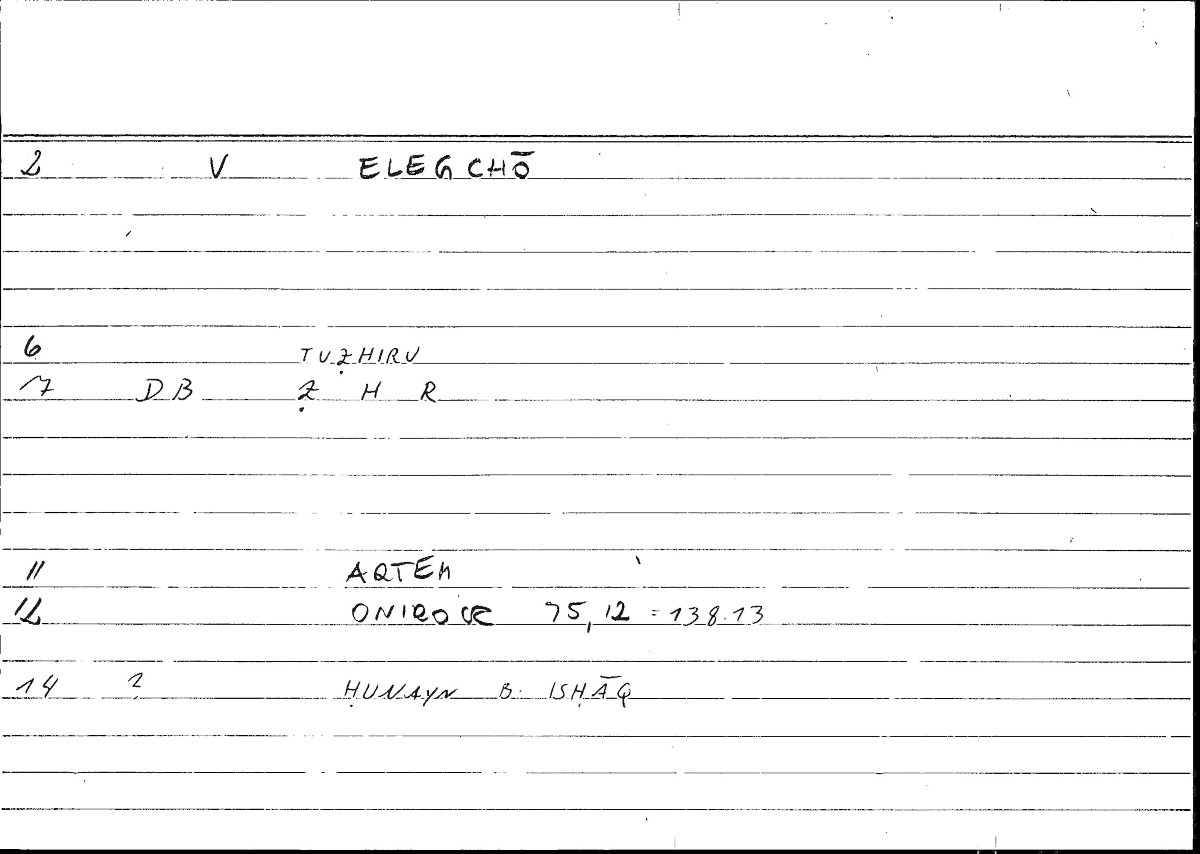 2 V ELEGCHŌ
6 TUẒHIRU
7 DB Ẓ H R
11 ARTEM
12 ONIROCR 75,12 = 138.13
14 ? ḤUNAYN B. ISḤĀQ